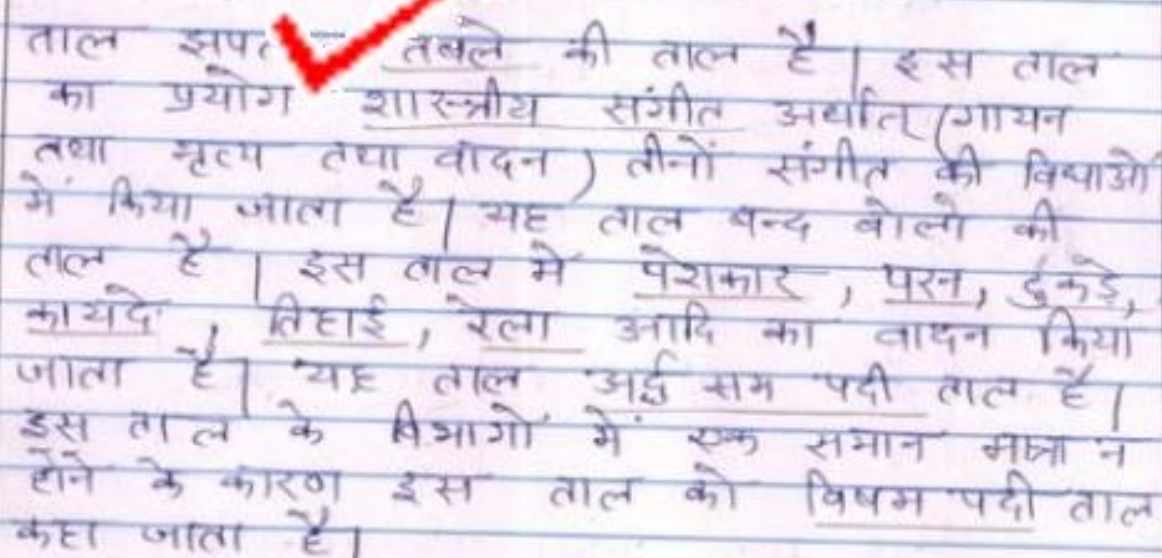 ताल झपत तबले की ताल है। इस ताल
का प्रयोग शास्त्रीय संगीत अर्थात् (गायन
तथा नृत्य तथा वादन) तीनों संगीत की विधाओं
में किया जाता है। यह ताल बन्द बोलो की
ताल है। इस ताल में पेशकार, परन, टुकड़े,
कायदे, तिहाई, रेला आदि का वादन किया
जाता है। यह ताल अर्द्ध सम पदी ताल है।
इस ताल के विभागों में एक समान मात्रा न
होने के कारण इस ताल को विषम पदी ताल
कहा जाता है।